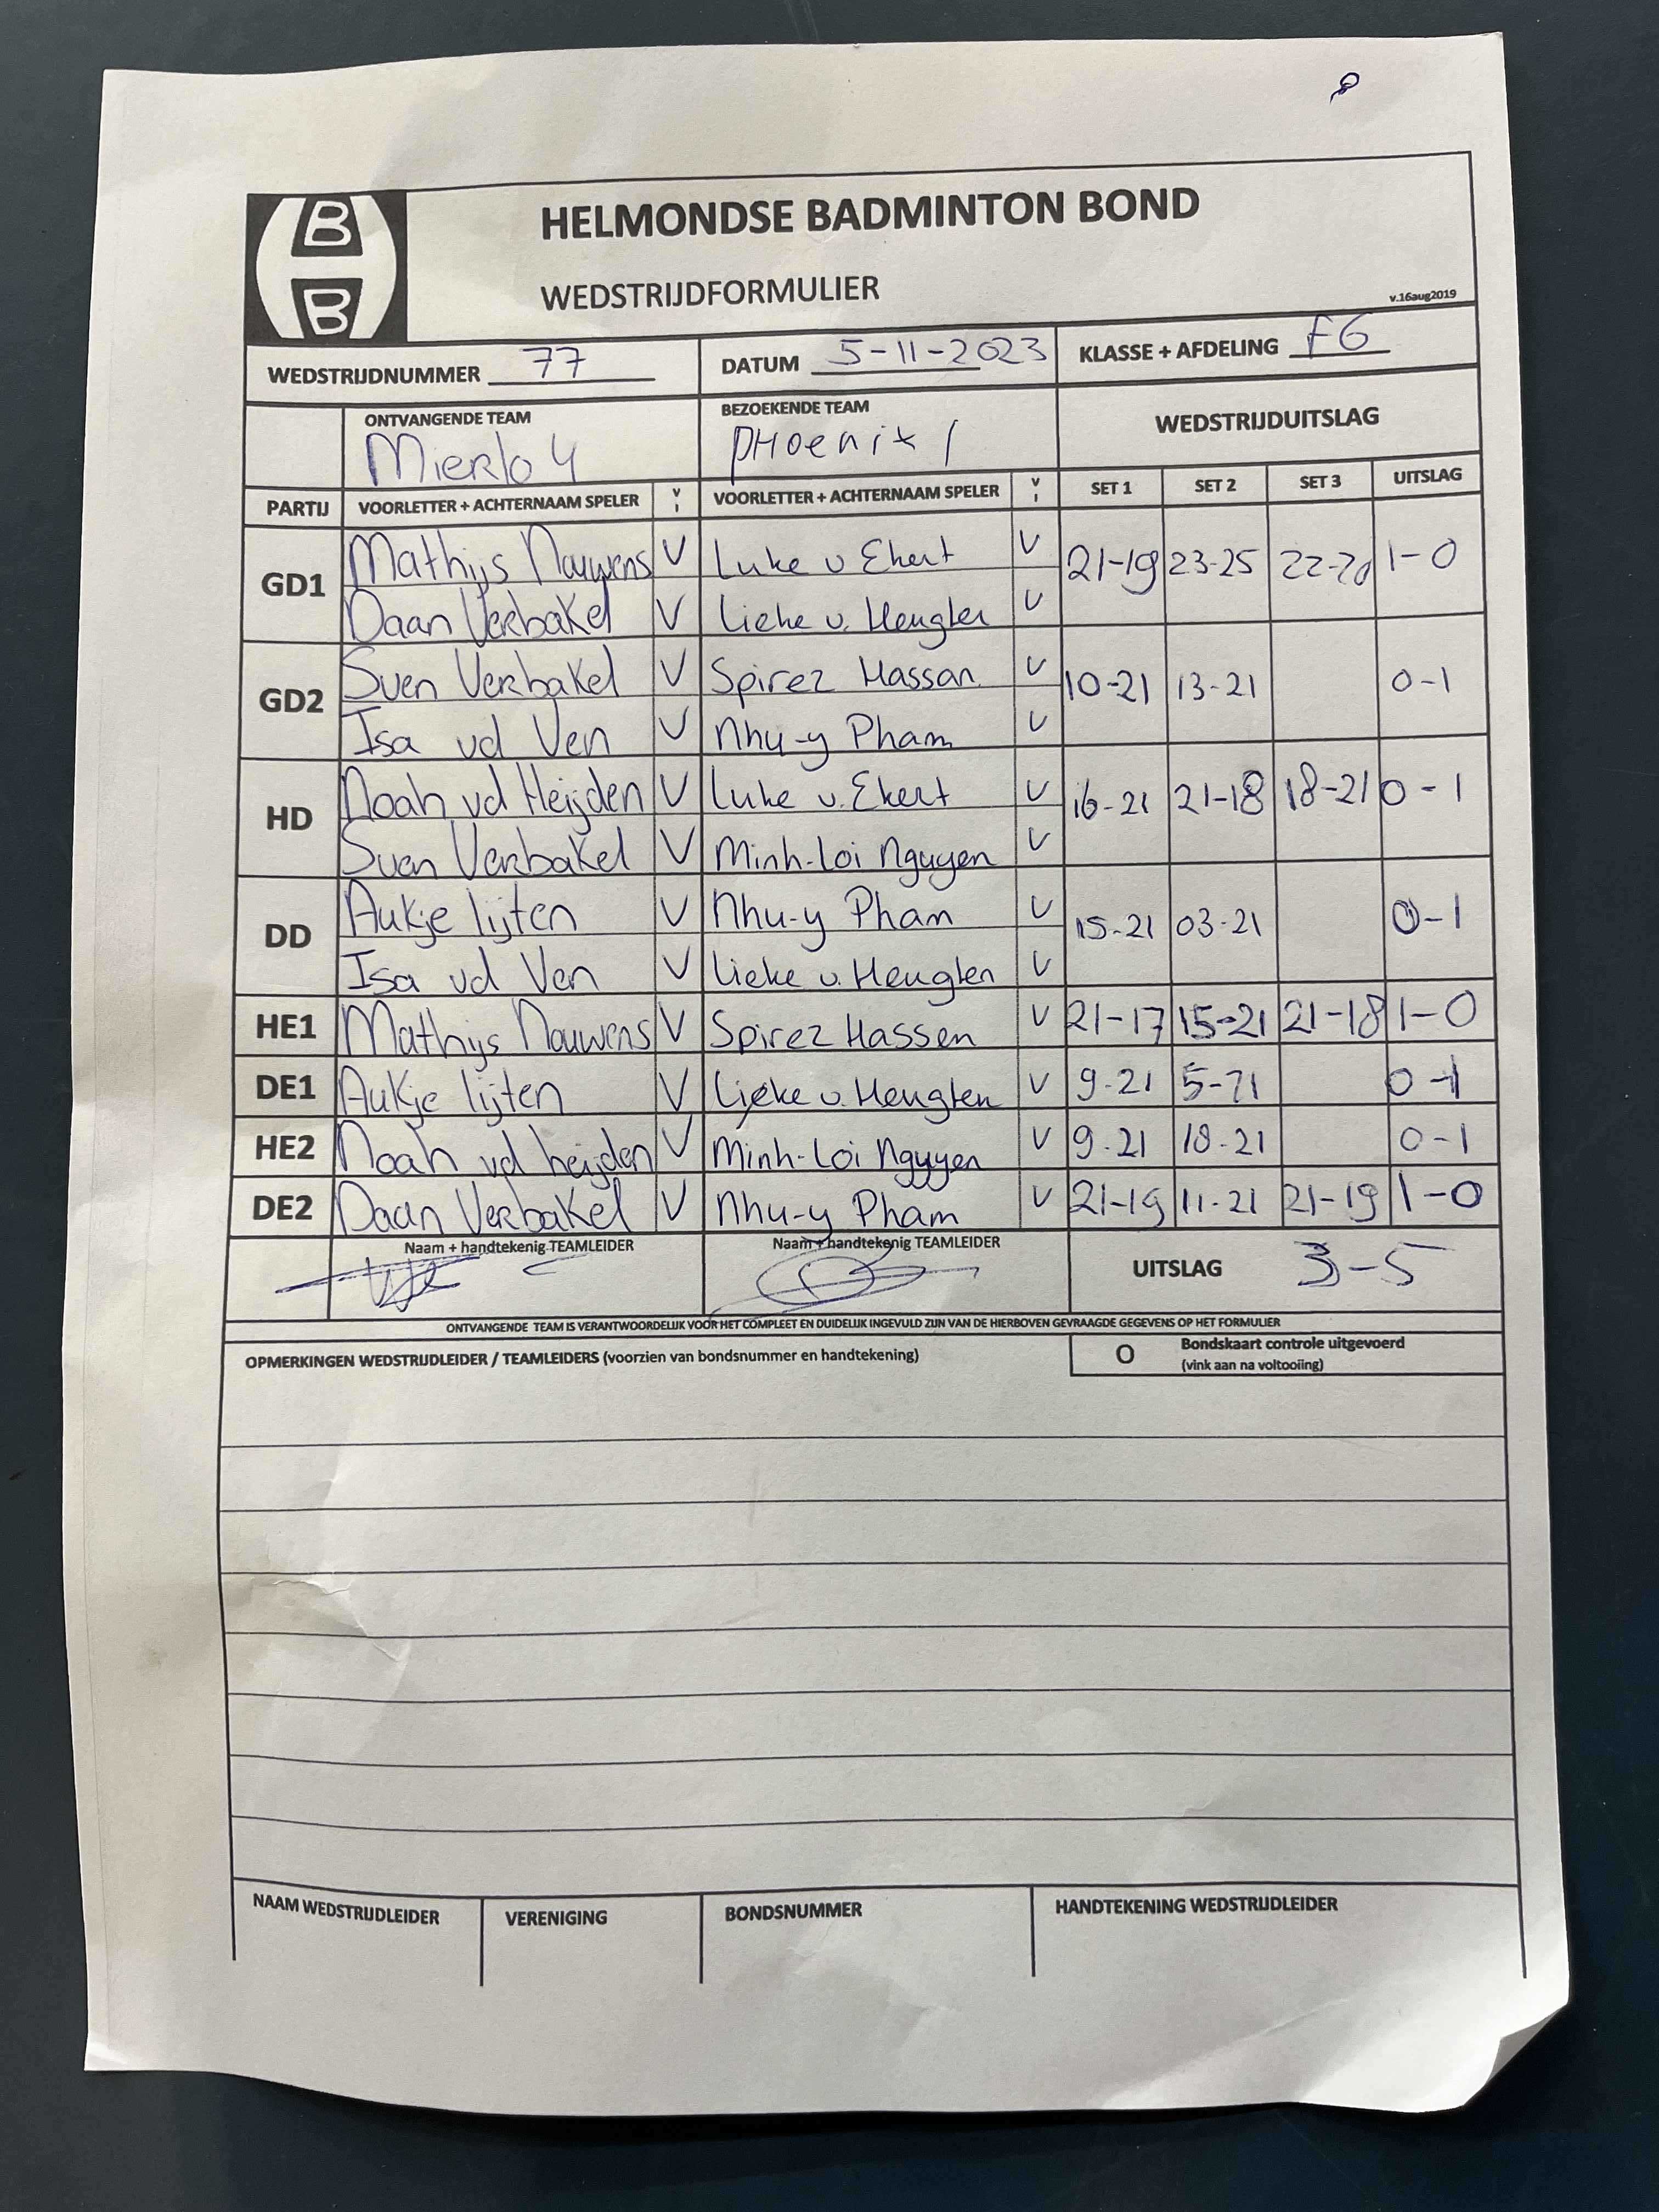 B
B
HELMONDSE BADMINTON BOND
WEDSTRIJDFORMULIER
v.16aug2019
WEDSTRIJDNUMMER 77 DATUM 5-11-2023 KLASSE + AFDELING F6
ONTVANGENDE TEAM BEZOEKENDE TEAM WEDSTRIJDUITSLAG
Mierlo 4 PHoenix 1
PARTIJ VOORLETTER + ACHTERNAAM SPELER V I VOORLETTER + ACHTERNAAM SPELER V I SET 1 SET 2 SET 3 UITSLAG
GD1 Mathijs Nouwens V Luke v Ekert V 21-19 23-25 22-20 1-0
Daan Verbakel V Lieke v. Heugten V
GD2 Sven Verbakel V Spirez Hassan V 10-21 13-21 0-1
Isa vd Ven V Nhu-y Pham V
HD Noah vd Heijden V Luke v. Ekert V 16-21 21-18 18-21 0-1
Sven Verbakel V Minh-Loi Nguyen V
DD Aukje lijten V Nhu-y Pham V 15-21 03-21 0-1
Isa vd Ven V Lieke v. Heugten V
HE1 Mathijs Nouwens V Spirez Hassen V 21-17 15-21 21-18 1-0
DE1 Aukje lijten V Lieke v. Heugten V 9-21 5-21 0-1
HE2 Noah vd heijden V Minh-Loi Nguyen V 9-21 18-21 0-1
DE2 Daan Verbakel V Nhu-y Pham V 21-19 11-21 21-19 1-0
Naam + handtekenig TEAMLEIDER Naam + handtekenig TEAMLEIDER UITSLAG 3-5
ONTVANGENDE TEAM IS VERANTWOORDELIJK VOOR HET COMPLEET EN DUIDELIJK INGEVULD ZIJN VAN DE HIERBOVEN GEVRAAGDE GEGEVENS OP HET FORMULIER
OPMERKINGEN WEDSTRIJDLEIDER / TEAMLEIDERS (voorzien van bondsnummer en handtekening) O Bondskaart controle uitgevoerd
(vink aan na voltooiing)
NAAM WEDSTRIJDLEIDER VERENIGING BONDSNUMMER HANDTEKENING WEDSTRIJDLEIDER